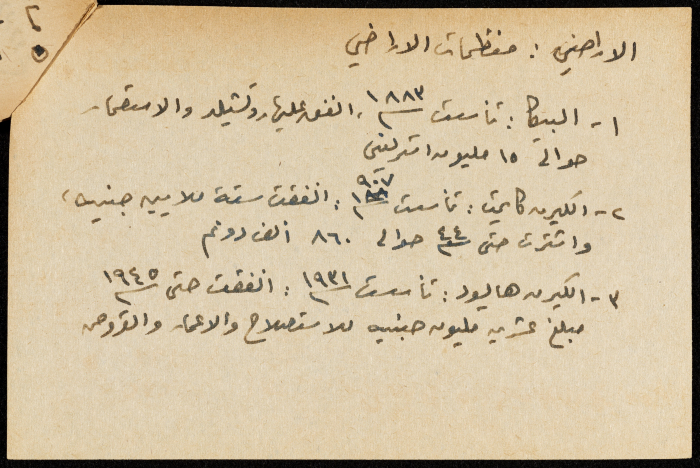 الاراضي : منظمات الاراضي
١ - البيكا : تأسست ١٨٨٣ ، انفق عليها روتشيلد والاستعمار
حوالي ١٥ مليون استرليني
٢ - الكيرن كايمت : تأسست ٩٠٧ : انفقت ستة ملايين جنيه ،
واشترت حتى ٤٤ حوالي ٨٦٠ الف دونم
٣ - الكيرن هايسود : تأسست ١٩٣١ : انفقت حتى ١٩٤٥
مبلغ عشرين مليون جنيه للاستصلاح والاعمار والقروض